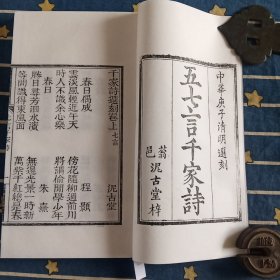 中華庚子清明選刻
五七言千家詩
邑 泥古堂梓
千家詩選刻卷上 七言
泥古堂
春日偶成 程顥
雲淡風輕近午天 傍花隨柳過前川
時人不識余心樂 將謂偷閒學少年
春日 朱熹
勝日尋芳泗水濱 無邊光景一時新
等閒識得東風面 萬紫千紅總是春